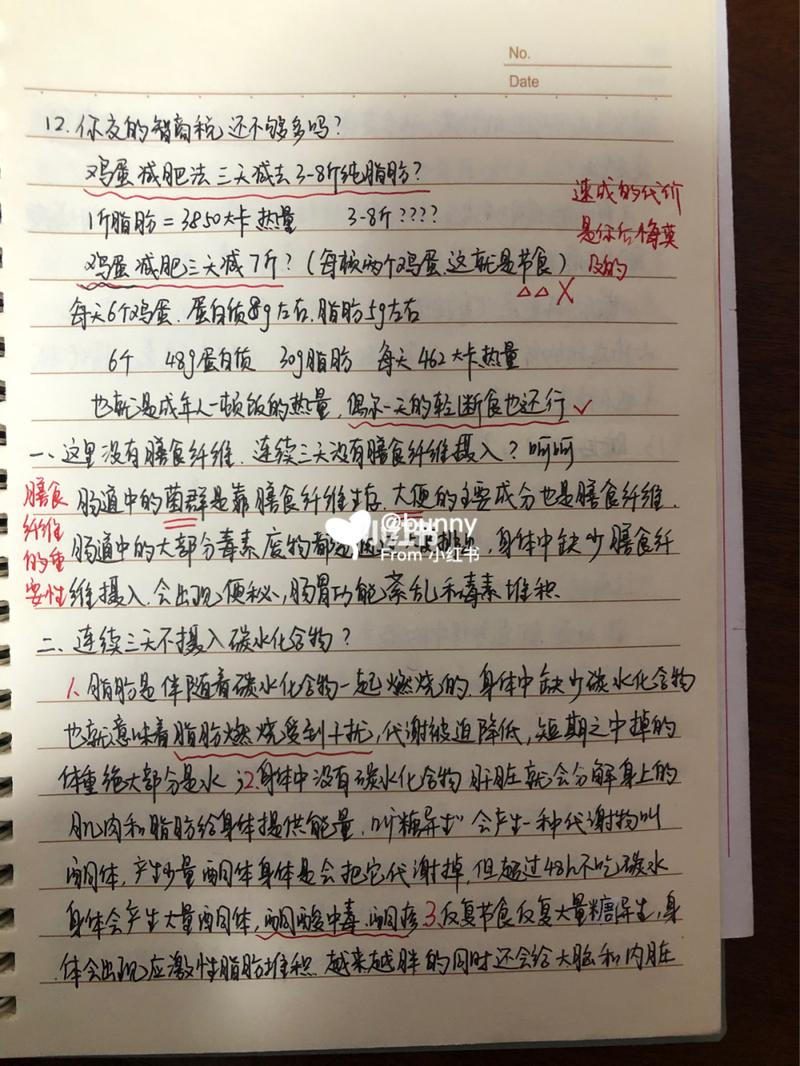 No.
Date
12.你交的智商税还不够多吗?
鸡蛋减肥法三天减去3-8斤纯脂肪?
1斤脂肪=3850大卡热量 3-8斤????
鸡蛋减肥三天减7斤?(每顿两个鸡蛋,这就是节食)
△△X
速成的代价
是你后悔莫
及的
每天6个鸡蛋.蛋白质8g左右.脂肪5g左右
6个 48g蛋白质 30g脂肪 每天462大卡热量
也就是成年人一顿饭的热量,偶尔一天的轻断食也还行✓
一、这里没有膳食纤维.连续三天没有膳食纤维摄入?呵呵
膳食
纤维
的重
要性
肠道中的菌群是靠膳食纤维生存.大便的主要成分也是膳食纤维.
肠道中的大部分毒素废物都是,身体中缺少膳食纤
维摄入.会出现便秘,肠胃功能紊乱和毒素堆积.
@bunny
From 小红书
二、连续三天不摄入碳水化合物?
1.脂肪是伴随着碳水化合物一起燃烧的.身体中缺少碳水化合物
也就意味着脂肪燃烧受到干扰,代谢被迫降低,短期之中掉的
体重绝大部分是水;2.身体中没有碳水化合物肝脏就会分解身上的
肌肉和脂肪给身体提供能量,叫"糖异生"会产生一种代谢物叫
酮体,产生少量酮体身体是会把它代谢掉,但超过48h不吃碳水
身体会产生大量酮体,酮酸中毒.酮疹3.反复节食反复大量糖异生,身
体会出现应激性脂肪堆积.越来越胖的同时还会给大脑和内脏